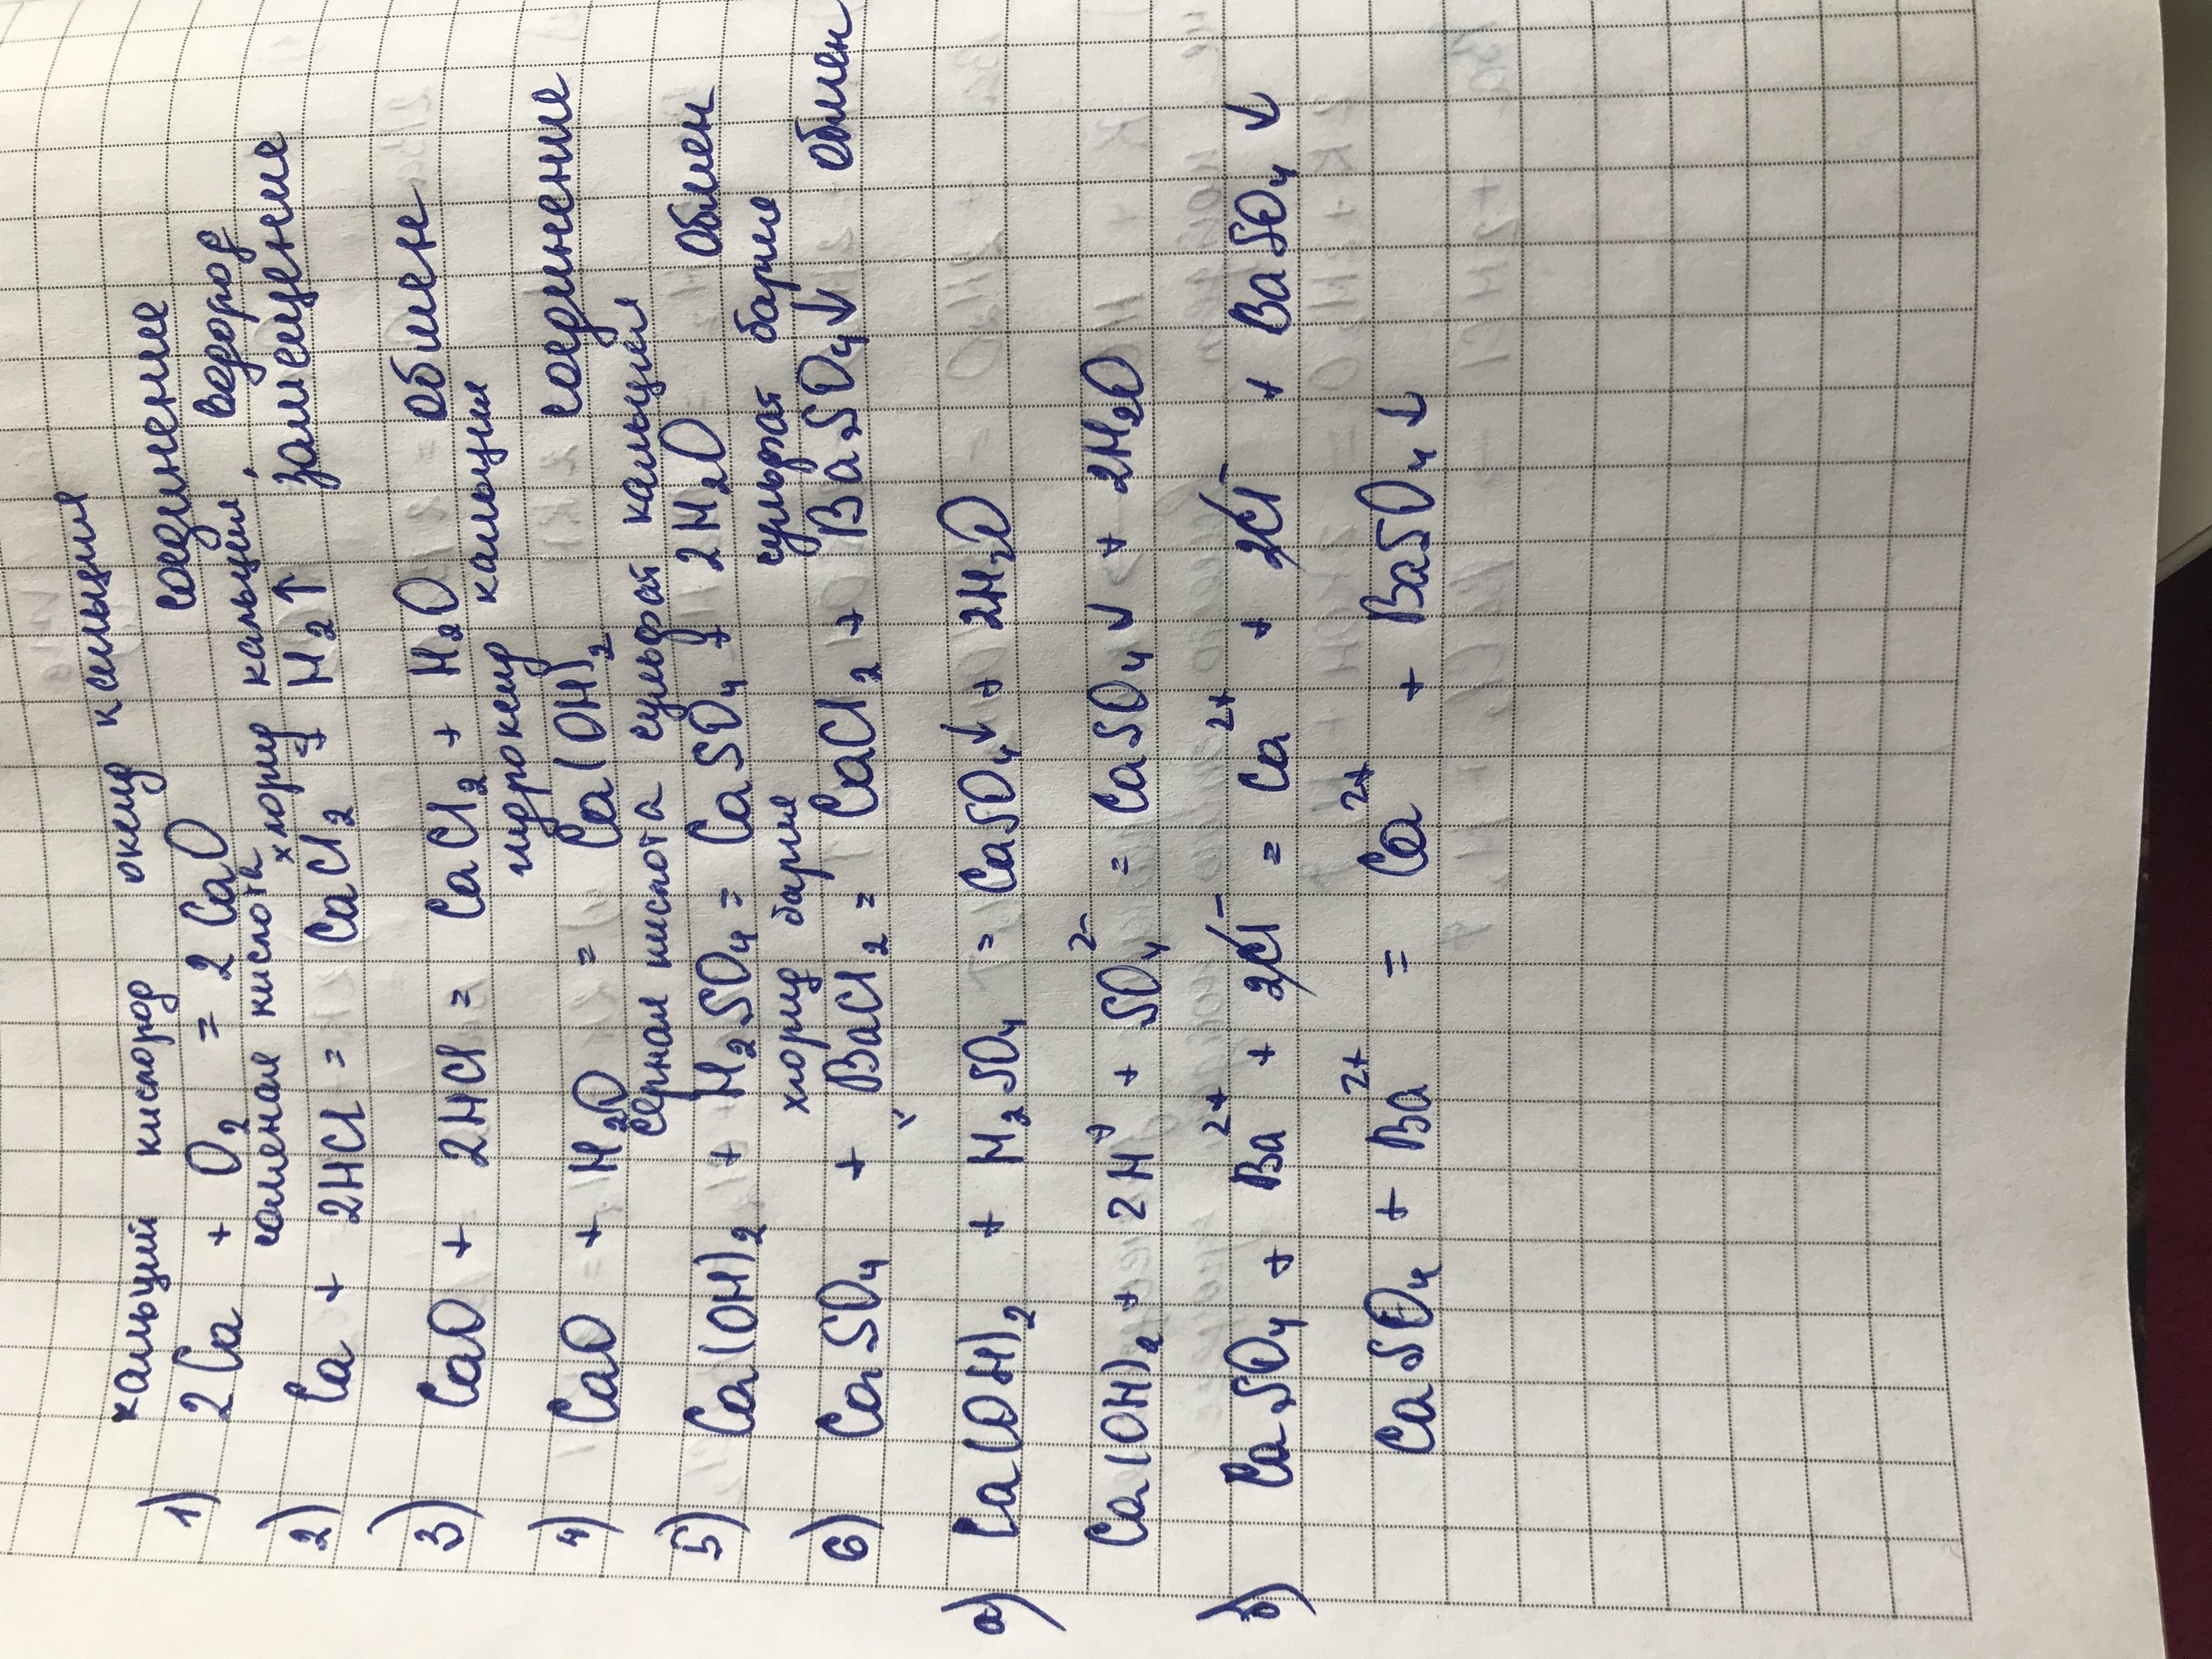 кальций кислород оксид кальция
1) 2Ca + O₂ = 2CaO соединение
соленая кислота хлорид кальция, водород
2) Ca + 2HCl = CaCl₂ + H₂↑ замещение
3) CaO + 2HCl = CaCl₂ + H₂O обмен
гидроксид кальция
4) CaO + H₂O = Ca(OH)₂ соединение
серная кислота сульфат кальция
5) Ca(OH)₂ + H₂SO₄ = CaSO₄ + 2H₂O Обмен
хлорид бария сульфат бария
6) CaSO₄ + BaCl₂ = CaCl₂ + BaSO₄↓ обмен
а) Ca(OH)₂ + H₂SO₄ = CaSO₄↓ + 2H₂O
Ca(OH)₂ + 2H⁺ + SO₄²⁻ = CaSO₄↓ + 2H₂O
б) CaSO₄ + Ba²⁺ + 2Cl⁻ = Ca²⁺ + 2Cl⁻ + BaSO₄↓
CaSO₄ + Ba²⁺ = Ca²⁺ + BaSO₄↓